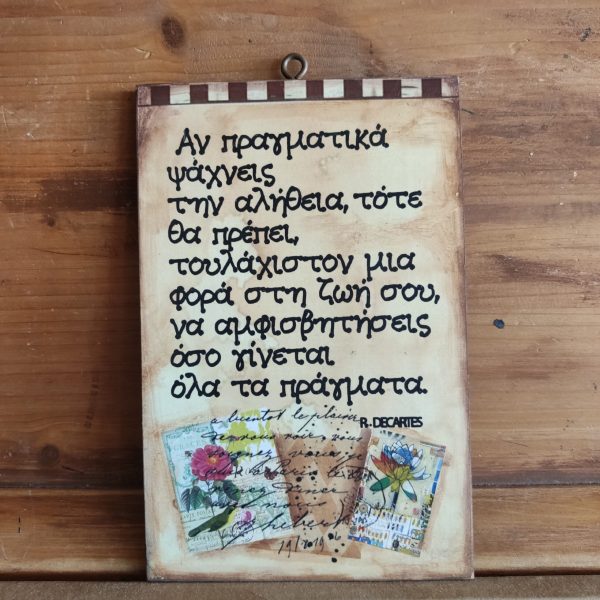 Αν πραγματικά
ψάχνεις
την αλήθεια, τότε
θα πρέπει,
τουλάχιστον μια
φορά στη ζωή σου,
να αμφισβητήσεις
όσο γίνεται
όλα τα πράγματα.
R. DECARTES
a bientot le plaisir